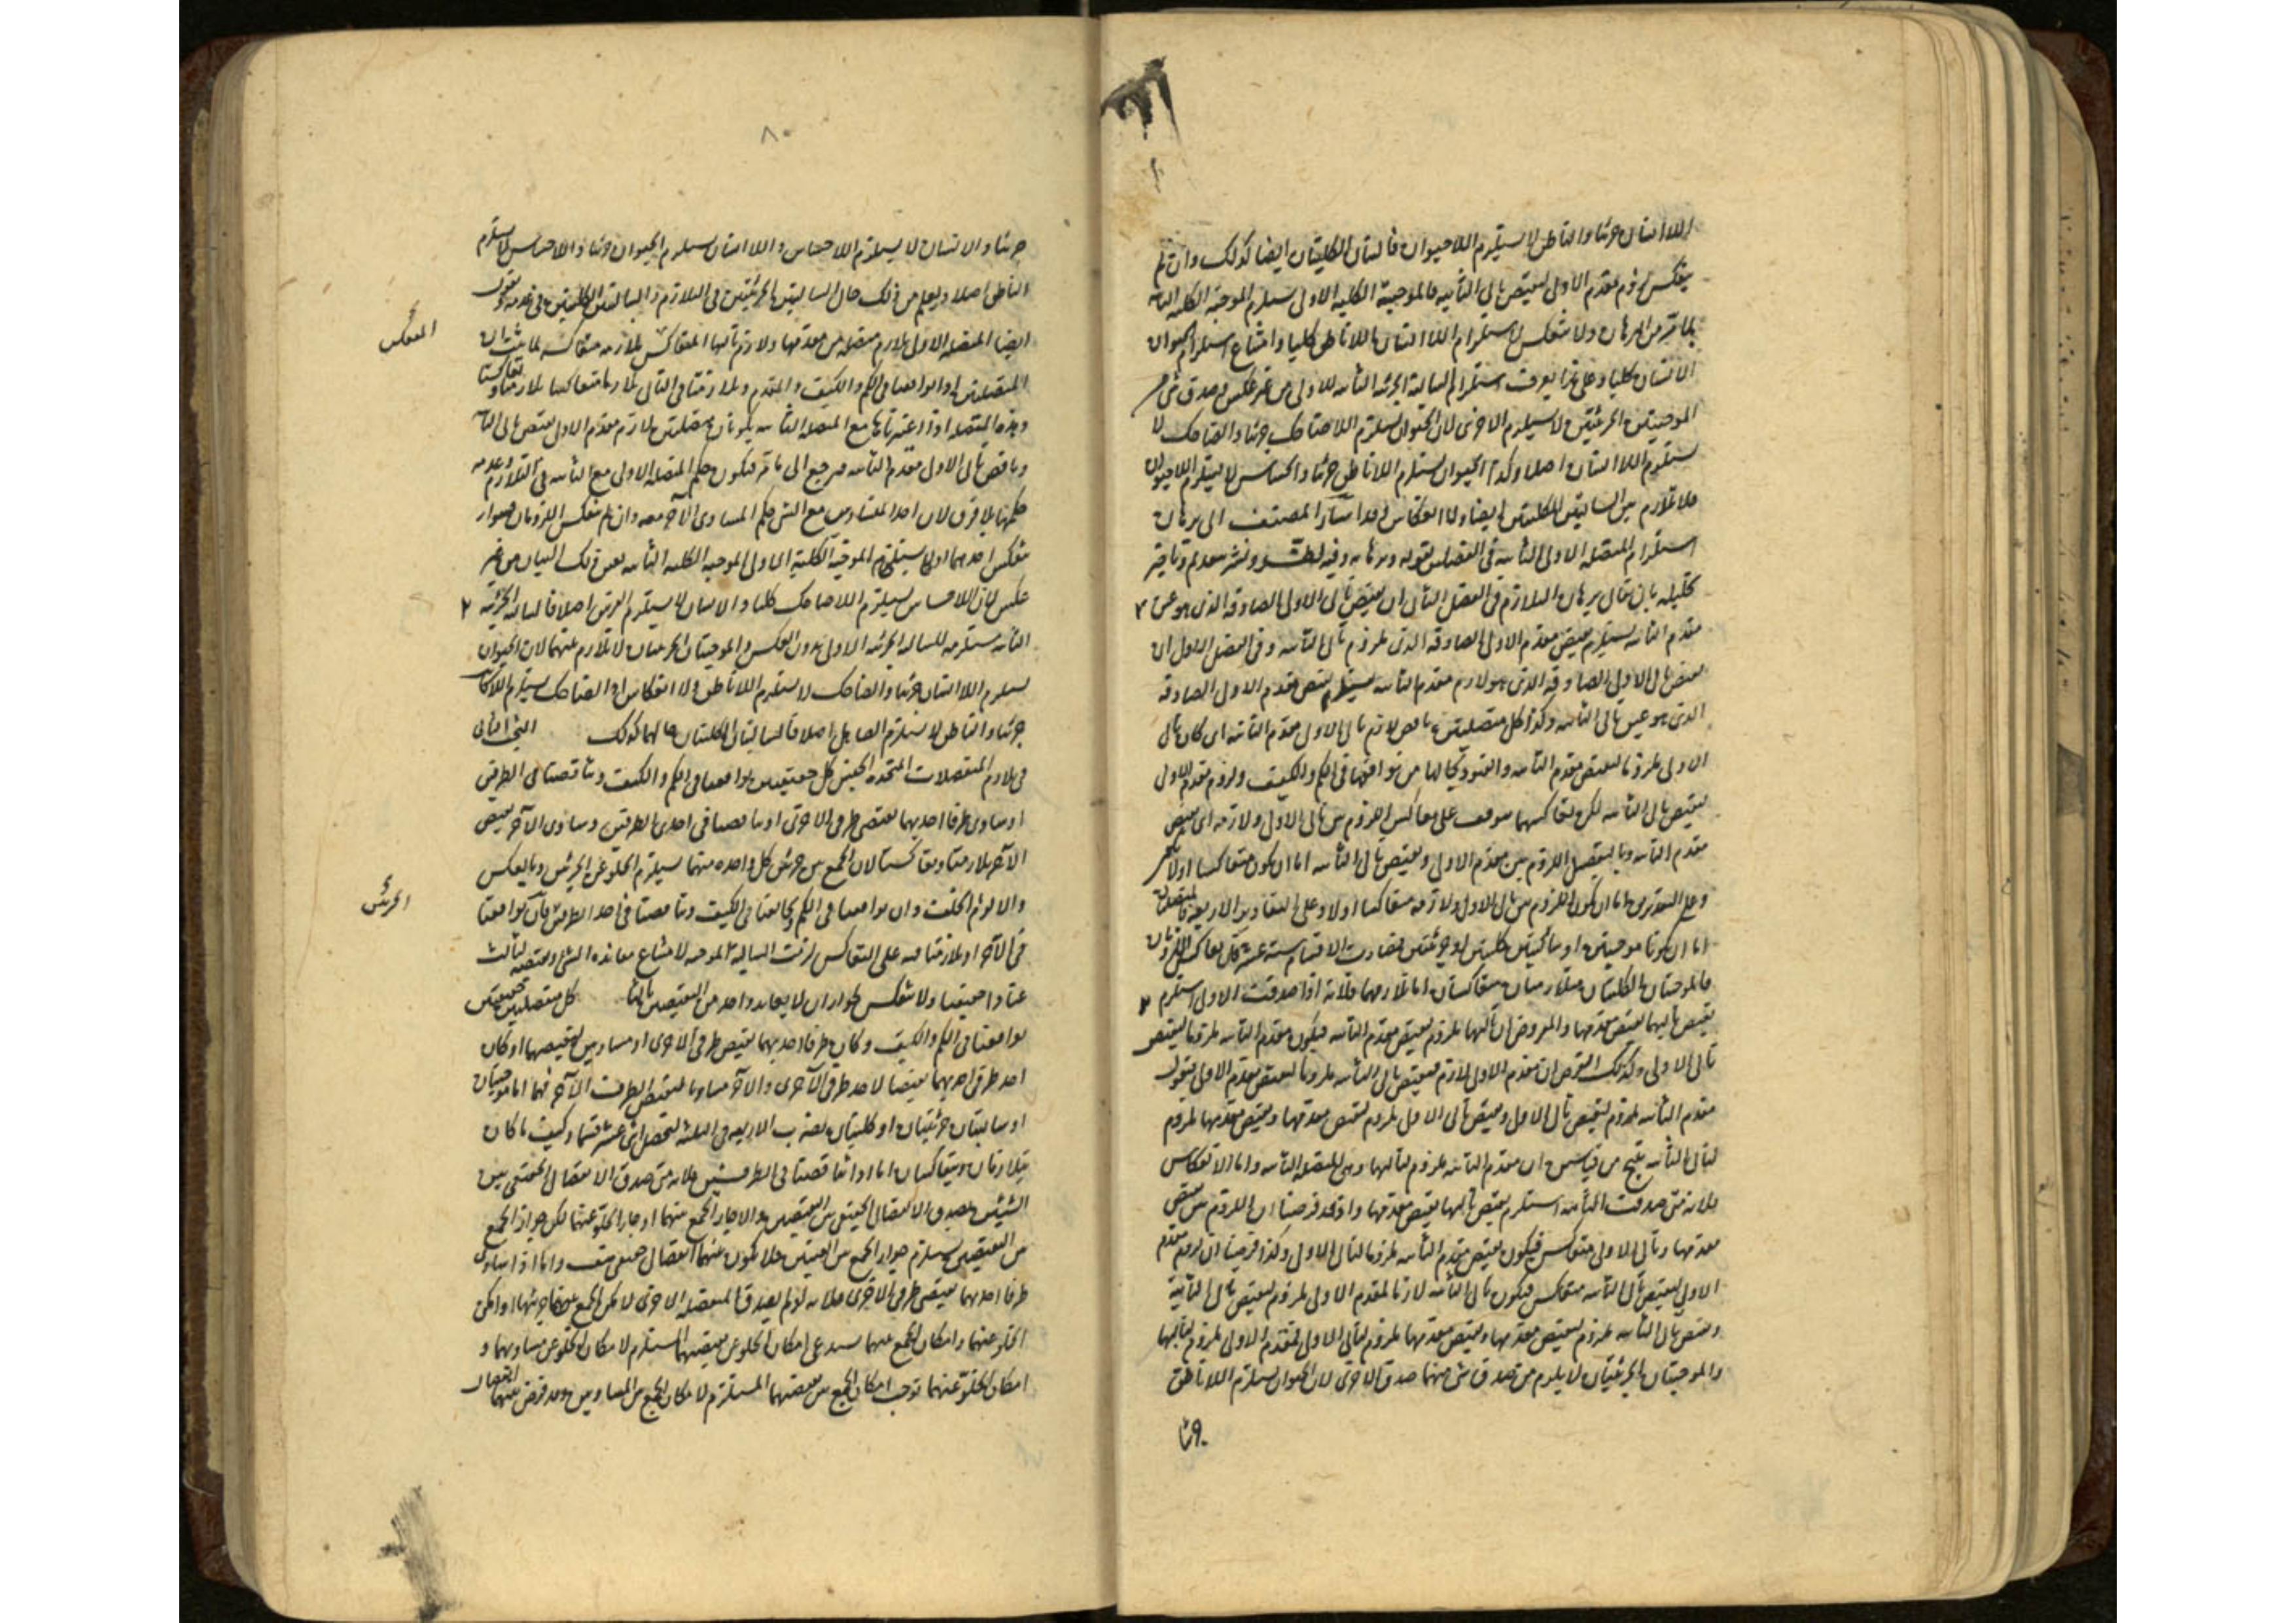 اللاانسان جزئيا والناطق لا يستلزم اللاحيوان فالسالبتان الكليتان ايضا كذلك وان لم
ينعكس لزوم مقدم الاولى لنقيض تالى الثانيه فالموجبة الكليه الاولى تستلزم الموجبة الكليه الثانيه
لما مر من البرهان ولا تنعكس لاستلزام اللاانسان اللاناطق كليا وامتناع استلزام الحيوان
الانسان كليا وعلى هذا يعرف استلزام السالبة الجزئيه الثانيه للاولى من غير عكس وصدق شى من
الموجبتين الجزئيتين لا يستلزم الاخرى لان الحيوان يستلزم اللاضاحك جزئيا والضاحك لا
يستلزم اللاانسان اصلا وكذا الحيوان يستلزم اللاناطق جزئيا والحساس لا يستلزم اللاحيوان
فلا تلازم بين السالبتين الكليتين ايضا ولا انعكاس وقد اشار المصنف الى برهان
استلزام المتصله الاولى الثانيه فى الفصلين بقوله وبرهانه وفيه لف ونشر بتقديم وتاخير
تحليله بان يقال برهان التلازم فى الفصل الثانى ان نقيض تالى الاولى الصادقه الذى هو عين
مقدم الثانيه يستلزم نقيض مقدم الاولى الصادقه الذى هو ملزوم تالى الثانيه وفى الفصل الاول ان
نقيض تالى الاولى الصادقه الذى هو لازم مقدم الثانيه يستلزم نقيض مقدم الاولى الصادقه
الذى هو عين تالى الثانيه وكذا كل متصلتين ناقض لازم تالى الاولى مقدم الثانيه اى كان تالى
الاولى ملزوما لنقيض مقدم الثانيه والقيود بحالها من توافقهما فى الكم والكيف ولزوم مقدم الاولى
لنقيض تالى الثانيه لكن تعاكسهما موقوف على تعاكس اللزوم بين تالى الاولى ولازمه اى نقيض
مقدم الثانيه وبالتفصيل اللزوم بين مقدم الاولى ونقيض تالى الثانيه اما ان يكون متعاكسا اولا
وعلى التقديرين اما ان يكون اللزوم بين تالى الاولى ولازمه متعاكسا اولا وعلى التقادير الاربعه فالمتصلتان
اما ان تكونا موجبتين او سالبتين كليتين او جزئيتين فصارت الاقسام ستة عشر فان تعاكس اللزومان
فالموجبتان الكليتان متلازمتان متعاكستان اما تلازمهما فلانه اذا صدقت الاولى استلزم
نقيض تاليهما نقيض مقدمها والمفروض ان تاليها ملزوم لنقيض مقدم الثانيه فيكون مقدم الثانيه ملزوما لنقيض
تالى الاولى وكذلك الفرض ان مقدم الاولى لازم لنقيض تالى الثانيه ملزوما لنقيض مقدم الاولى فنقول
مقدم الثانيه ملزوم لنقيض تالى الاولى ونقيض تالى الاولى ملزوم لنقيض مقدمها ونقيض مقدمها ملزوم
لتالى الثانيه ينتج من قياسين ان مقدم الثانيه ملزوم لتاليها وهى المتصله الثانيه واما الانعكاس
فلانه متى صدقت الثانيه استلزم نقيض تاليها نقيض مقدمها واذ قد فرضنا ان اللزوم بين نقيض
مقدمها وتالى الاولى متعاكس فيكون نقيض مقدم الثانيه ملزوما لتالى الاولى وكذا فرضنا ان لزوم مقدم
الاولى لنقيض تالى الثانيه متعاكس فيكون تالى الثانيه لازما لمقدم الاولى ملزوم لنقيض تالى الثانية
ونقيض تالى الثانيه ملزوم لنقيض مقدمها ونقيض مقدمها ملزوم لتالى الاولى فمقدم الاولى ملزوم لتاليها
والموجبتان الجزئيتان لا يلزم من صدق شى منهما صدق الاخرى لان الحيوان يستلزم اللاناطق
٨٠
جزئيا والانسان لا يستلزم اللاحساس واللاانسان يستلزم الحيوان جزئيا واللاحساس لا يستلزم
الناطق اصلا ويعلم من ذلك حال السالبتين الجزئيتين فى التلازم والسالبتين الكليتين فى عدمه ونقول
ايضا المتصله الاولى يلازم متصله من مقدمها ولازم تاليها المتعاكس ملازمه متعاكسه لما مر ان
المتصلتين اذا توافقتا فى الكم والكيف والمقدم وتلازمتا فى التالى تلازما متعاكسا تلازمتا وتعاكستا
وهذه المتصله اذا اعتبرناها مع المتصله الثانيه يكونان متصلتين لازم مقدم الاولى نقيض تالى الثانيه
وناقض تالى الاولى مقدم الثانيه فيرجع الى ما مر فيكون حكم المتصله الاولى مع الثانيه فى التلازم وعدمه
حكمها بلا فرق لان احد المتساويين مع الشى حكم المساوى الاخر معه وان لم تنعكس اللزومان جواز
المنعكس
تنعكس احدهما اولا يستلزم الموجبة الكلية الاولى الموجبه الكليه الثانيه بعين ذلك البيان من غير
عكس لان اللاحساس يستلزم اللاضاحك كليا والانسان لا يستلزم الفرس اصلا فالسالبه الجزئيه
الثانيه مستلزمه للسالبه الجزئيه الاولى بدون العكس والموجبتان الجزئيتان لا تلازم بينهما لان الحيوان
يستلزم اللاانسان جزئيا والضاحك لا يستلزم اللاناطق ولا انعكاس اذ الضاحك يستلزم اللاكاتب
جزئيا والناطق لا يستلزم الصاهل اصلا فالسالبتان الكليتان حالهما كذلك البحث الثانى
فى تلازم المنفصلات المتحده الجنس كل حقيقيتين توافقتا فى الكم والكيف وتناقضتا فى الطرفين
او ساوى طرفا احديهما نقيضى طرفى الاخرى او تناقضتا فى احدى الطرفين وساوى الاخر نقيض
الاخر تلازمتا وتعاكستا لان الجمع بين جزئى كل واحده منهما يستلزم الخلو عن الجزئين وبالعكس
الجزئين
والا لزم الخلف وان توافقتا فى الكم وتخالفتا فى الكيف وتناقضتا فى احد الطرفين فان توافقتا
فى الاخر او تلازمتا فيه على التعاكس لزمت السالبة الموجبه لامتناع معانده الشى ونقيضه لثالث
عنادا حقيقيا ولا تنعكس لجواز ان لا يعاند واحد من النقيضين ثالثا كل منفصلتين حقيقيتين
توافقتا فى الكم والكيف وكان طرفا احديهما نقيضى طرفى الاخرى او مساويين لنقيضهما او كان
احد طرفى احديهما نقيضا لاحد طرفى الاخرى والاخر مساويا لنقيض الطرف الاخر فهما اما موجبتان
او سالبتان جزئيتان او كليتان يضرب الاربعه فى الثلثه لتحصل اثنى عشر قسما وكيف ما كان
يتلازمان ويتعاكسان اما اذا تناقضتا فى الطرفين فلانه متى صدق الانفصال الحقيقى بين
الشيئين يصدق الانفصال الحقيقى بين النقيضين والا جاز الجمع بينهما او جاز الخلو عنهما لكن جواز الجمع
بين النقيضين يستلزم جواز الجمع بين العينين فلا يكون بينهما انفصال حقيقى هف واما اذا ساوى
طرفا احديهما نقيضى طرفى الاخرى فلانه لو لم يصدق المنفصله الاخرى لامكن الجمع بين جزئيها او امكن
الخلو عنهما وامكان الجمع بينهما يستدعى امكان الخلو عن نقيضيهما المستلزم لامكان الخلو عن مساويهما و
امكان الخلو عنهما يوجب امكان الجمع بين نقيضهما المستلزم لامكان الجمع بين المساويين وقد فرض بينهما انفصال